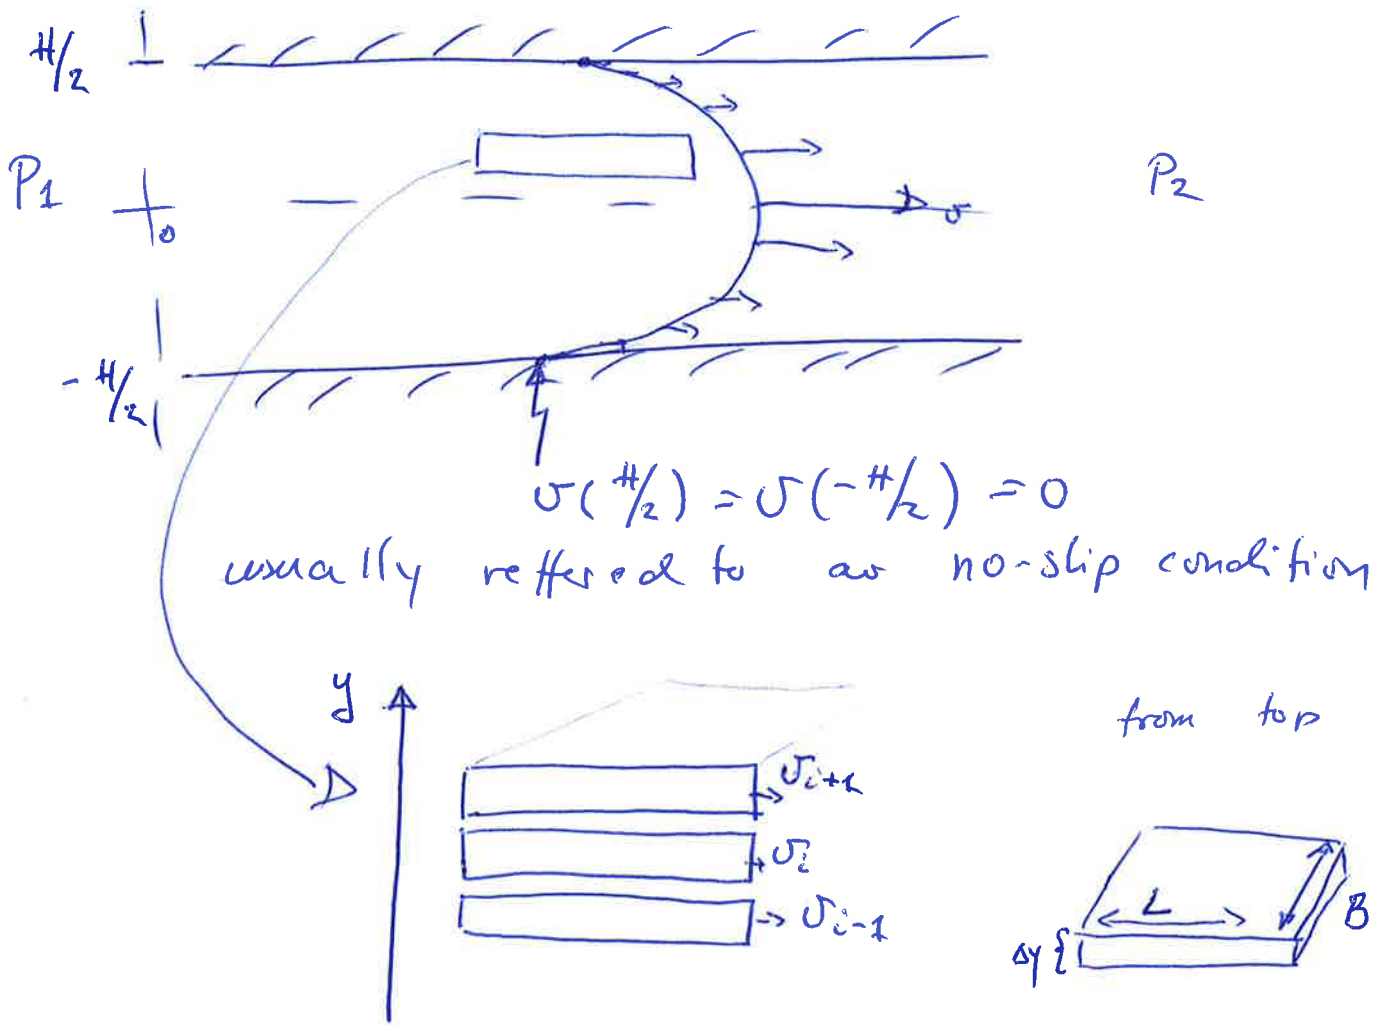 H/2
P1
0
v
P2
- H/2
v(H/2) = v(-H/2) = 0
usually reffered to as no-slip condition
y
from top
v_{i+1}
v_i
v_{i-1}
L
B
Δy {